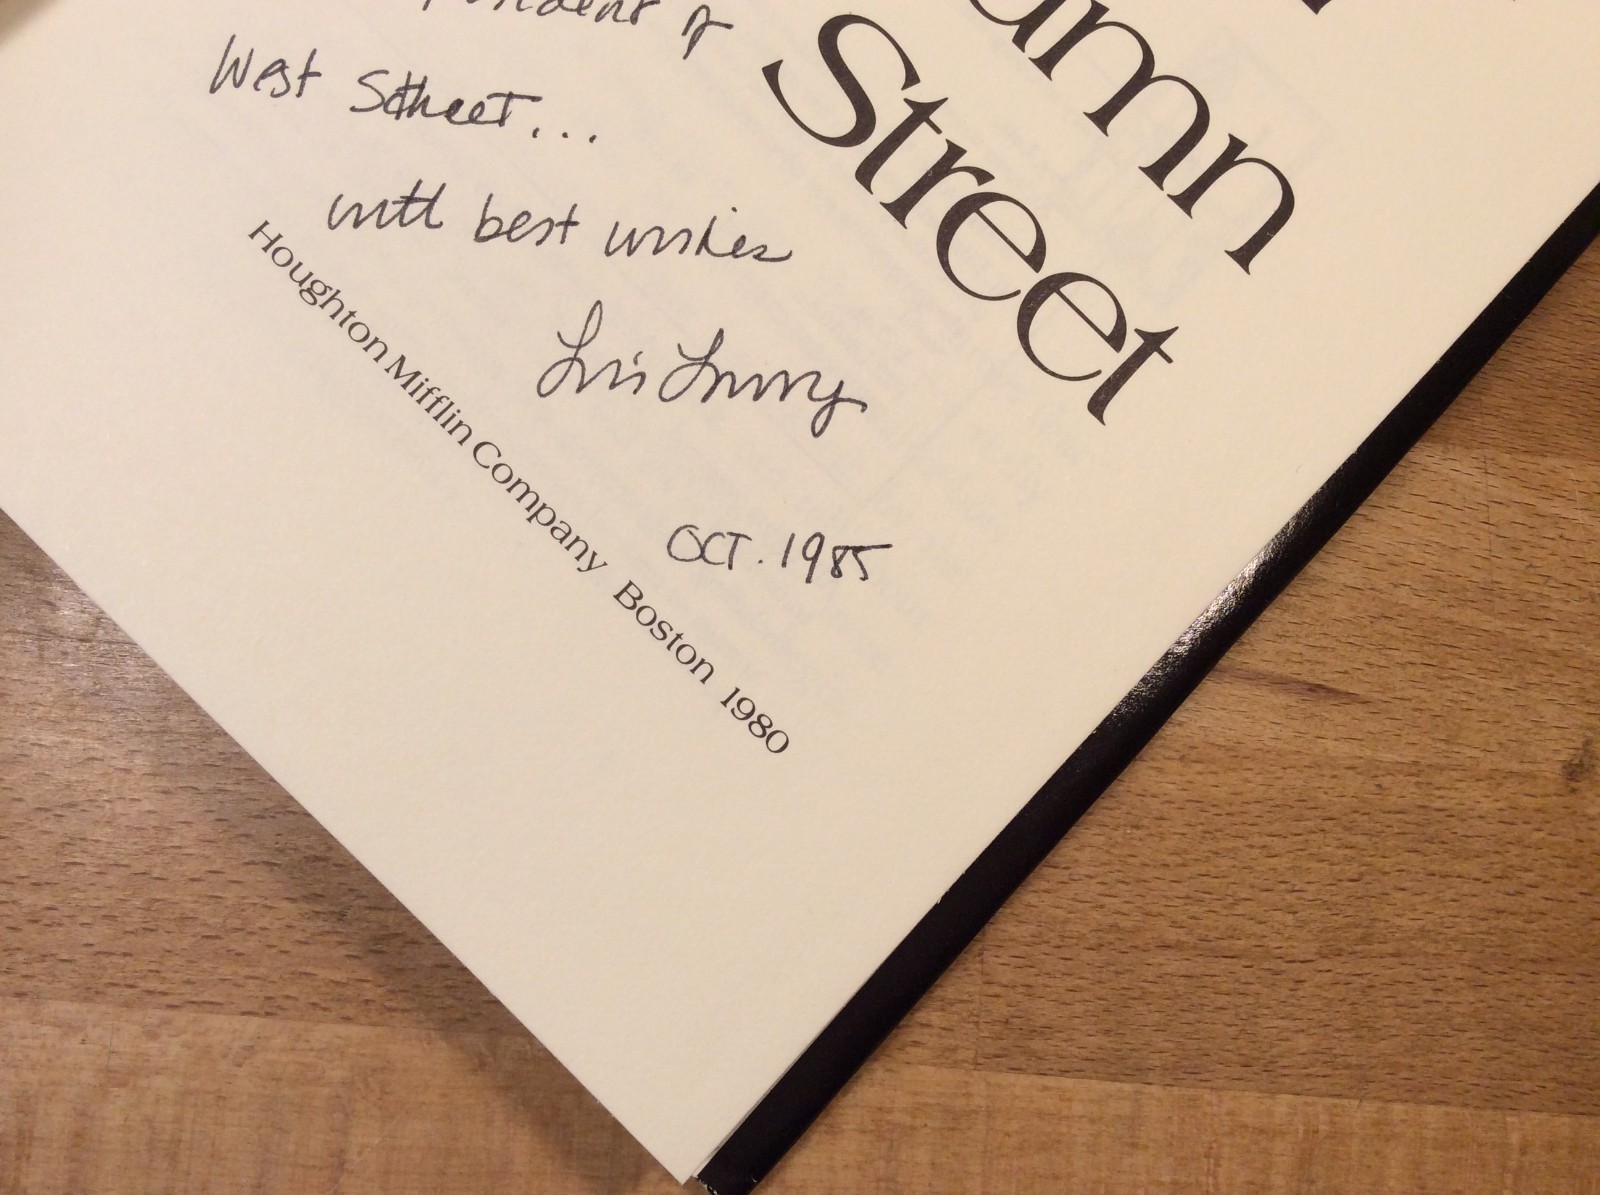 umn
Street
of
West Street...
with best wishes
Lois Lowry
OCT. 1985
Houghton Mifflin Company Boston 1980